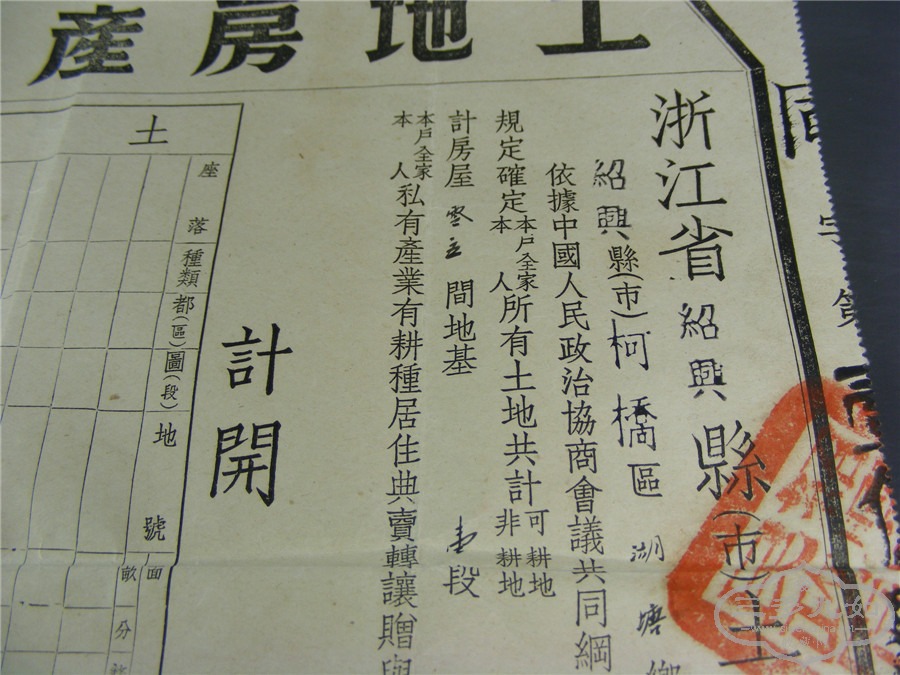 土地房產
浙江省紹興縣(市)土
紹興縣(市)柯橋區湖塘鄉
依據中國人民政治協商會議共同綱
規定確定本戶全家本人所有土地共計可耕地非耕地
計房屋零玄間地基壹段
本戶全家本人私有產業有耕種居住典賣轉讓贈與
計開
土
座落
種類
都(區)圖(段)
地號
面
畝分
字第